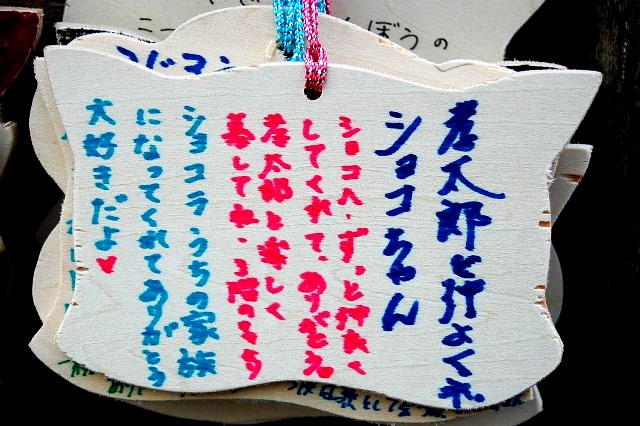 孝太郎と仲よくネ。
ショコちゃん
ショコへ、ずっと仲良く
してくれて、ありがとう。
孝太郎と楽しく
暮してね。3階のママ
ショコラ うちの家族
になってくれてありがとう
大好きだよ♥